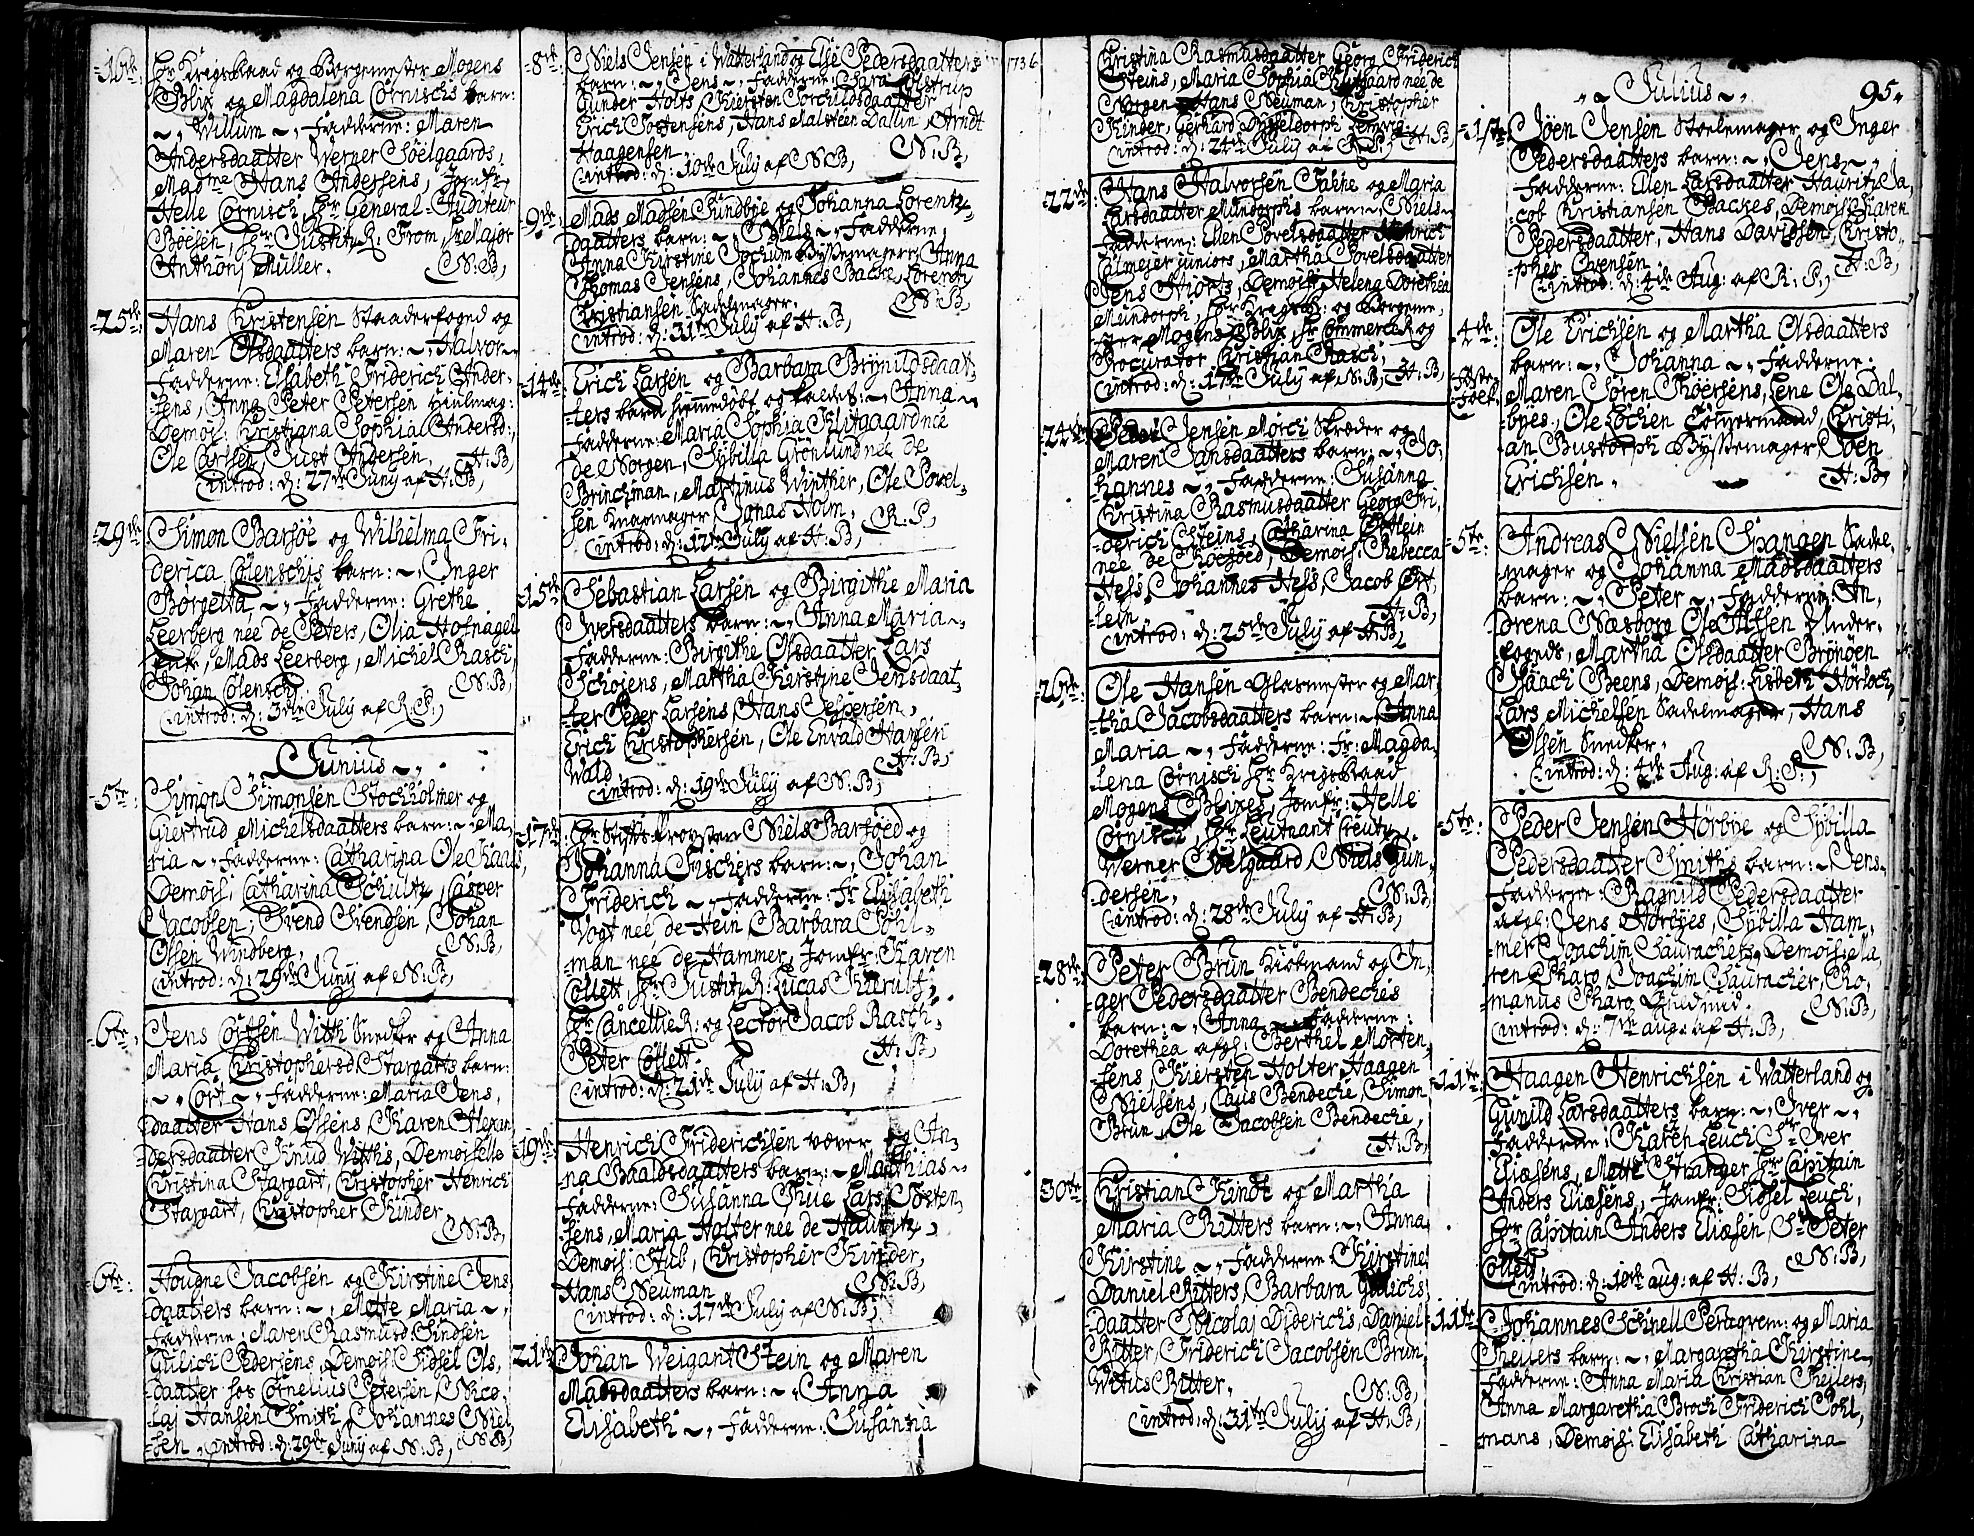 -10de
Hr. Krigs Raad og Borgemester Mogens
Blix og Magdalena Cornischs barn:
~, Willum ~, Fadderne: Maren
Andersdaatter Werner Söelgaards,
Madme Hans Andersens, Jomfr.
Helle Cornisch, Hr. General-Auditeur
Böesen, Hr. Justitz R: From, Hr. Major
Anthonj Müller. N:B,
-25de:
Hans Christensen Staaderfoged og
Maren Olsdaatters barn: ~, Halvor ~
Fadderne: Elisabeth Friderich Ander-
-sens, Anna Peter Petersen Hiulmag:
Demois: Christiana Sophia Andersd:,
Ole Larsen, Just Andersen, H:B,
introd: d: 27de Junij af H:B,
-29de
Simon Barsöe og Wilhelma Fri-
derica Colenschis barn: ~, Inger
Borgetta, ~, Fadderne: Grethe
Leerberg neé de Peters, Olia Hofnagel
Mads Leerberg, Michel Rasch,
Johan Colensch, N:B,
introd: d: 3die Julij af R:P,
~ Junius ~,
-5te:
Simon Simonsen Stockholmer og
Giertrud Michelsdaatters barn: ~, Ma-
ria ~, Fadderne: Catharina Ole Kaas,
Demois: Catharina Schultz, Casper
Jacobsen, Svend Svendsen, Johan
Olsen Windberg, N:B,
introd: d: 29de Junij af N:B,
6te,
Jens Cortsen Witth Snedker og Anna
Maria Christophersd. Stargarts barn:
~, Cort ~, Fadderne: Maria Jens,
daatter Hans Olsens, Karen Alexan-
dersdaatter Knud Witths, Demoiselle
Christina Stargart, Christopher Henrich
Stargart, Christopher Kinder,
N:B,
6te:
Hougne Jacobsen og Kirstine Jens,
daatters barn: ~, Mette Maria ~,
Fadderne: Maren Rasmusd: Sindsen
Gulich Pedersens, Demois: Sidsel Ols,
daatter hos Cornelius Petersen, Nico-
laj Hansen Smith, Johannes Niel-
-sen, introd: d: 29de Junij af N:B, N:B,
-8de:
Niels Jensen i Watterland og Else Pedersdaatters
barn: ~, Jens ~, Fadderne: Sara Olstrup
Gunder Holts, Kiersten Torchildsdaatter
Erich Tostensens, Hans Malsteen Dallin, Arndt
Haagensen, N:B,
introd: d: 10de Julij af N:B,
9de:
Mads Madsen Sundbye og Johanna Lorentz-
daatters barn: ~, Niels ~, Fadderne,
Anna Kirstine Jochum Bössemagers, Anna
Thomas Jensens, Johannes Backe, Lorentz
Christiansen Sadelmager. N:B,
introd: d: 31te Julij af H:B,
-14de:
Erich Larsen og Barbara Brynildsdaat-
ters barn hiemmedöbt og kaldet: ~, Anna ~
Fadderne: Maria Sophia Klitgaard neé
de Norgen, Sybilla Grönlund neé de
Brinchman, Martinus Winther, Ole Povel-
sen Knapmager, Jonas Holm, R:P,
introd: d: 12te Julij af H:B,
-15de
Sebastian Larsen og Birgithe Maria
Iversdaatters barn: ~, Anna Maria ~,
Fadderne: Birgithe Olsdaatter Lars
Schojens, Martha Kirstine Jensdaat-
ter Peder Larsens, Hans Jespersen,
Erich Christophersen, Ole Envald Hansen
Wald, H:B,
introd: d: 19de Julij af N:B,
-17de
Hr. Stifts Provsten Niels Barsöed og
Johanna Fischers barn: ~, Johan
Friderich ~, Fadderne: Fr. Elisabeth
Vogt neé de Hein, Barbara Pohl-
-man neé de Hammer, Jomfr: Karen
Collett, Hr. Justitz R: Lucas Kierulf,
Hr. Cancellie R: og Lector Jacob Rasch,
Peter Collett. H:B,
introd: d: 21de Julij af H:B,
19de
Henrich Friderichsen væver og An-
na Baaldsdaatters barn: ~, Matthias ~
Fadderne: Susanna Thue Lars Tosten-
sens, Maria Holter neé de Hauritz,
Demois: Hub, Christopher Kinder,
Hans Neuman N:B,
introd: d: 17de Julij af N:B,
21de
Johan Weigant Stein og Maren
Madsdaatters barn: ~, Anna
Elisabeth ~, Fadderne: Susanna
1736
Christina Rasmusdaatter Georg Friderich
Steins, Maria Sophia Klitgaard neé de
Norgen, Hans Neuman, Christopher
Kinder, Gerhard Dysseldorph
introd: d: 24de Julij af R:P, H:B,
22de:
Hans Halvorsen Takke og Maria
Larsdaatter Mundorphs barn: ~, Niels ~
Fadderne: Ellen Povelsdaatter Henrich
Calmejer juniors, Martha Povelsdaatter
Jens Hiorts, Demois: Helena Dorothea
Mundorph, Hr. Krigsr: og Borgeme-
-ster Mogens Blix, Hr. Commerce R: og
Procurator Christian Rasch,
introd: d: 17de Julij af N:B, H:B,
-24de
Peder Jensen Mörch Skræder og
Maren Jansdaatters barn: ~, Jo-
hannes ~, Fadderne: Susanna
Christina Rasmusdaatter Georg Fri-
derich Steins, Catharina Ortlein
neé de Röersöed, Demois: Rebecca
Hess, Johannes Hess, Jacob Ort-
lein H:B,
introd: d: 25de Julij af H:B,
-26te:
Ole Hansen Glasmester og Mar-
tha Jacobsdaatters barn: ~, Anna
Maria ~, Fadderne: Fr: Magda-
lena Cornisch Hr. Krigs Raad
Mogens Blixes, Jomfr: Helle
Cornisch, Hr. Leutnant Creutz,
Werner Söelgaard, Niels Gun-
dersen, N:B,
introd: d: 28de Julij af H:B,
-28de,
Peter Brun Kiöbmand og In-
ger Pedersdaatter Bendeches
barn: ~, Anna ~, Fadderne:
Dorethea afgl: Berthel Morten-
sens, Kiersten Holter Haagen
Nielsens, Claus Bendeche, Simon
Brun, Ole Jacobsen Bendeche,
H:B,
30te:
Christian Kindt og Martha
Maria Ritters barn: ~, Anna
Kirstine ~, Fadderne: Kirstine
Daniel Ritters, Barbara Gulichs-
daatter Nicolaj Diderichs, Daniel
Ritter, Friderich Jacobsen Brun,
Witus Ritter, N:B,
introd: d: 31te Julij af H:B,
~ Julius ~, 95.
-1ste
Joen Jensen Stolemager og Inger
Pedersdaatters barn: ~, Jens ~,
Fadderne: Ellen Larsdaatter Hauritz, Ja-
cob Christiansen Backes, Demois: Karen
Pedersdaatter, Hans Davidsen, Christo-
-pher Svensen H:B,
introd: d: 4de Aug: af R:P,
-4de:
Ole Erichsen og Martha Olsdaatters
barn: ~, Johanna ~, Fadderne:
Maren Sören Thöersens, Lene Ole Dal-
byes, Ole Lochen Tömmermand, Christi-
an Bustorph Byssemager, Joen
Erichsen. H:B,
-5te:
Andreas Nielsen Spangen Sadel-
mager og Johanna Madsdaatters
barn: ~, Peter ~, Fadderne: An-
drena Næsborg Ole Under-
fogeds, Martha Olsdaatter Brönöen
Isaach Beens, Demois: Lisbeth Hörloch,
Lars Michelsen Sadelmager, Hans
Olsen Snedker, N:B,
introd: d: 4de Aug: af R:P,
5te:
Peder Jensen Hörbye og Sybilla
Pedersdaatter Smiths barn: ~, Jens ~
Fadderne: Ragnild Pedersdaatter
afgl: Jens Hörbyes, Sybilla Ham-
mer Joachim Saurachers, Demois: Ma-
ren Scharo, Joachim Sauracher, Ro-
manus Scharo, Gudmund. N:B,
introd: d: 7de aug: af H:B,
-11te
Haagen Henrichsen i Watterland og
Gunild Larsdaatters barn: ~, Iver ~,
Fadderne: Karen Leuch Sr. Iver
Eliæsens, Mette Stranger Hr. Capitain
Anders Eliæsens, Jomfr: Sidsel Leuch,
Hr. Capitain Anders Eliæsen, Sr. Peter
Collett, N:B,
introd: d: 10de aug: af H:B,
-11te
Johannes Schnell Pergavem: og Maria
Theilers barn: ~, Margaretha Kirstine ~
Fadderne: Anna Maria Christian Theilers,
Anna Margaretha Broch Friderich Pohl-
mans, Demois: Elisabeth Catharina